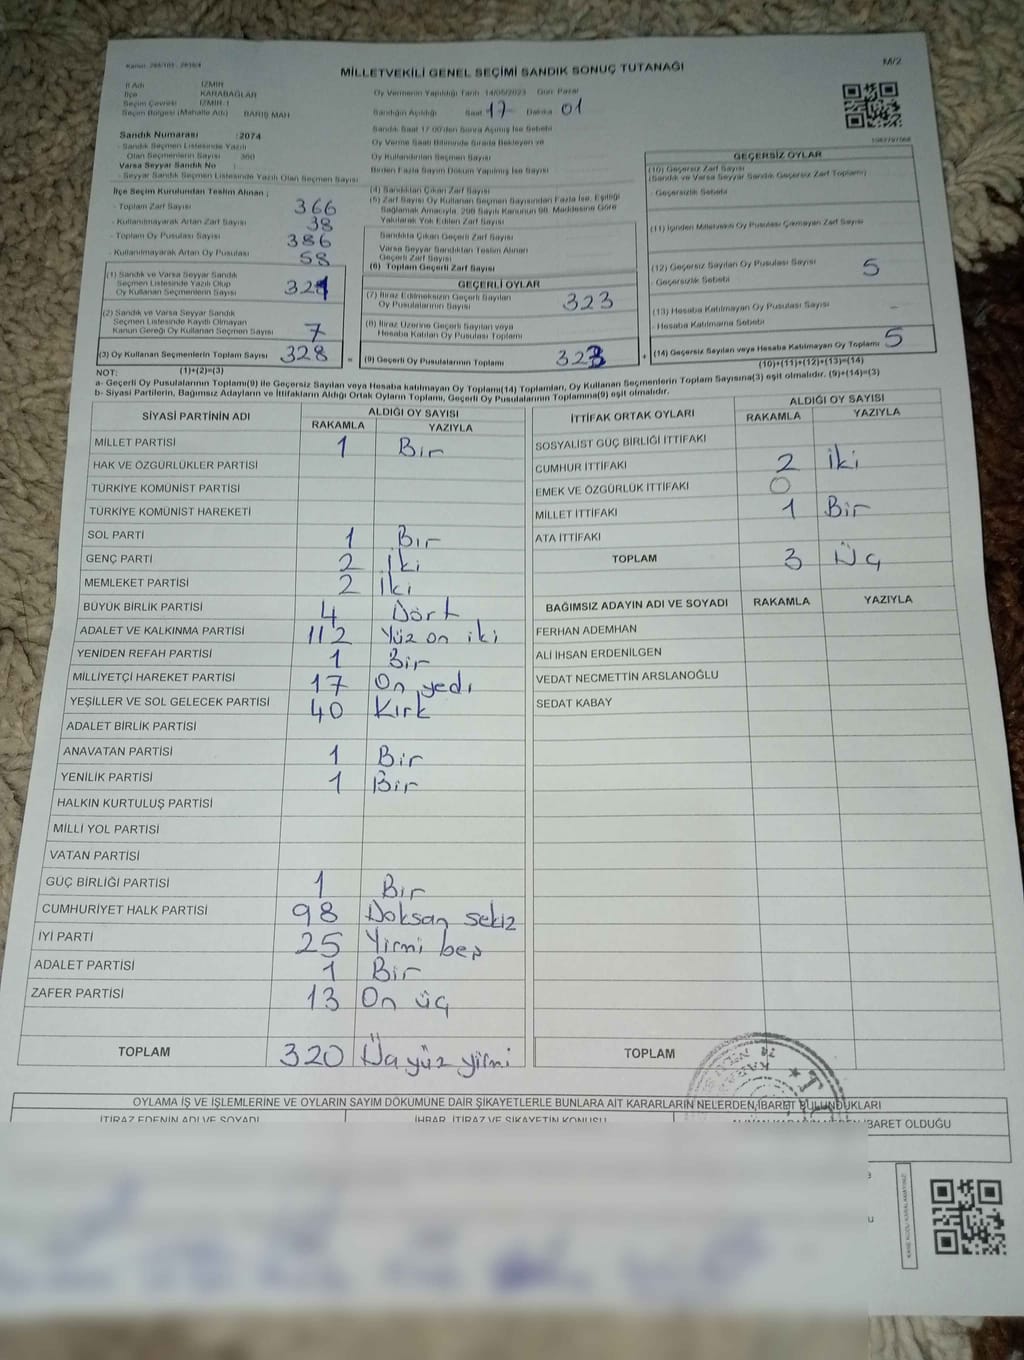 MİLLETVEKİLİ GENEL SEÇİMİ SANDIK SONUÇ TUTANAĞI
M/2
İl Adı İZMİR
İlçe KARABAĞLAR
Seçim Çevresi İZMİR-1
Seçim Bölgesi (Mahalle Adı) BARIŞ MAH
Oy Vermenin Yapıldığı Tarih 14/05/2023 Gün Pazar
Sandığın Açıldığı Saat 17 Dakika 01
Sandık Saat 17:00'den Sonra Açılmış İse Sebebi
Oy Verme Saati Bitiminde Sırada Bekleyen ve
Oy Kullandırılan Seçmen Sayısı
Birden Fazla Sayım Döküm Yapılmış İse Sayısı
Sandık Numarası :2074
- Sandık Seçmen Listesinde Yazılı
Olan Seçmenlerin Sayısı 360
Varsa Seyyar Sandık No :
- Seyyar Sandık Seçmen Listesinde Yazılı Olan Seçmen Sayısı
İlçe Seçim Kurulundan Teslim Alınan ;
- Toplam Zarf Sayısı 366
- Kullanılmayarak Artan Zarf Sayısı 38
- Toplam Oy Pusulası Sayısı 386
- Kullanılmayarak Artan Oy Pusulası 58
(1) Sandık ve Varsa Seyyar Sandık
Seçmen Listesinde Yazılı Olup
Oy Kullanan Seçmenlerin Sayısı 321
(2) Sandık ve Varsa Seyyar Sandık
Seçmen Listesinde Kayıtlı Olmayan
Kanun Gereği Oy Kullanan Seçmen Sayısı 7
(3) Oy Kullanan Seçmenlerin Toplam Sayısı 328 =
(1)+(2)=(3)
(4) Sandıktan Çıkan Zarf Sayısı
(5) Zarf Sayısı Oy Kullanan Seçmen Sayısından Fazla İse, Eşitliği
Sağlamak Amacıyla, 298 Sayılı Kanunun 98. Maddesine Göre
Yakılarak Yok Edilen Zarf Sayısı
Sandıkta Çıkan Geçerli Zarf Sayısı
Varsa Seyyar Sandıktan Teslim Alınan
Geçerli Zarf Sayısı
(6) Toplam Geçerli Zarf Sayısı
GEÇERLİ OYLAR
(7) İtiraz Edilmeksizin Geçerli Sayılan
Oy Pusulalarının Sayısı 323
(8) İtiraz Üzerine Geçerli Sayılan veya
Hesaba Katılan Oy Pusulası Toplamı
(9) Geçerli Oy Pusulalarının Toplamı 323 +
GEÇERSİZ OYLAR
(10) Geçersiz Zarf Sayısı
(Sandık ve Varsa Seyyar Sandık Geçersiz Zarf Toplamı)
- Geçersizlik Sebebi
(11) İçinden Milletvekili Oy Pusulası Çıkmayan Zarf Sayısı
(12) Geçersiz Sayılan Oy Pusulası Sayısı 5
- Geçersizlik Sebebi
(13) Hesaba Katılmayan Oy Pusulası Sayısı -
- Hesaba Katılmama Sebebi
(14) Geçersiz Sayılan veya Hesaba Katılmayan Oy Toplamı 5
(10)+(11)+(12)+(13)=(14)
NOT:
a- Geçerli Oy Pusulalarının Toplamı(9) ile Geçersiz Sayılan veya Hesaba katılmayan Oy Toplamı(14) Toplamları, Oy Kullanan Seçmenlerin Toplam Sayısına(3) eşit olmalıdır. (9)+(14)=(3)
b- Siyasi Partilerin, Bağımsız Adayların ve İttifakların Aldığı Ortak Oyların Toplamı, Geçerli Oy Pusulalarının Toplamına(9) eşit olmalıdır.
SİYASİ PARTİNİN ADI ALDIĞI OY SAYISI
RAKAMLA YAZIYLA
MİLLET PARTİSİ 1 Bir
HAK VE ÖZGÜRLÜKLER PARTİSİ
TÜRKİYE KOMÜNİST PARTİSİ
TÜRKİYE KOMÜNİST HAREKETİ
SOL PARTİ 1 Bir
GENÇ PARTİ 2 İki
MEMLEKET PARTİSİ 2 İki
BÜYÜK BİRLİK PARTİSİ 4 Dört
ADALET VE KALKINMA PARTİSİ 112 Yüz on iki
YENİDEN REFAH PARTİSİ 1 Bir
MİLLİYETÇİ HAREKET PARTİSİ 17 On yedi
YEŞİLLER VE SOL GELECEK PARTİSİ 40 Kırk
ADALET BİRLİK PARTİSİ
ANAVATAN PARTİSİ 1 Bir
YENİLİK PARTİSİ 1 Bir
HALKIN KURTULUŞ PARTİSİ
MİLLİ YOL PARTİSİ
VATAN PARTİSİ
GÜÇ BİRLİĞİ PARTİSİ 1 Bir
CUMHURİYET HALK PARTİSİ 98 Doksan sekiz
İYİ PARTİ 25 Yirmi beş
ADALET PARTİSİ 1 Bir
ZAFER PARTİSİ 13 On üç
TOPLAM 320 Üç yüz yirmi
İTTİFAK ORTAK OYLARI ALDIĞI OY SAYISI
RAKAMLA YAZIYLA
SOSYALİST GÜÇ BİRLİĞİ İTTİFAKI
CUMHUR İTTİFAKI 2 İki
EMEK VE ÖZGÜRLÜK İTTİFAKI 0
MİLLET İTTİFAKI 1 Bir
ATA İTTİFAKI
TOPLAM 3 Üç
BAĞIMSIZ ADAYIN ADI VE SOYADI RAKAMLA YAZIYLA
FERHAN ADEMHAN
ALİ İHSAN ERDENİLGEN
VEDAT NECMETTİN ARSLANOĞLU
SEDAT KABAY
TOPLAM
OYLAMA İŞ VE İŞLEMLERİNE VE OYLARIN SAYIM DÖKÜMÜNE DAİR ŞİKAYETLERLE BUNLARA AİT KARARLARIN NELERDEN İBARET BULUNDUKLARI
İTİRAZ EDENİN ADI VE SOYADI İHBAR, İTİRAZ VE ŞİKAYETİN KONUSU İBARET OLDUĞU